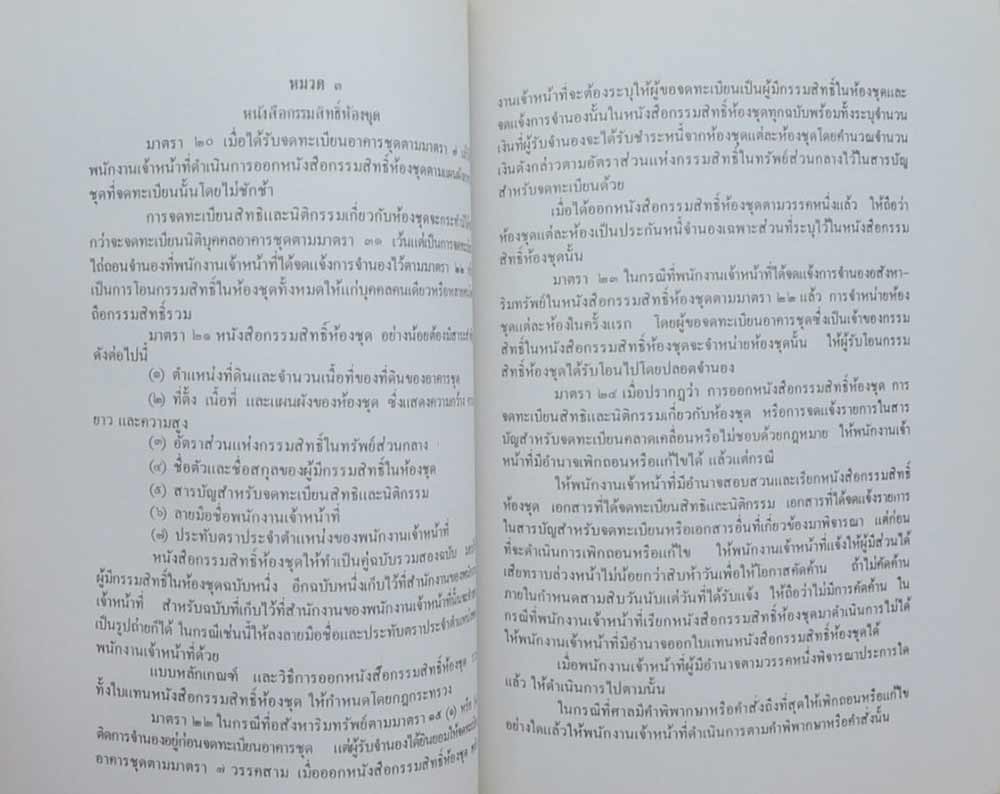 หมวด ๓
หนังสือกรรมสิทธิ์ห้องชุด
มาตรา ๒๐ เมื่อได้รับจดทะเบียนอาคารชุดตามมาตรา ๗ แล้ว
พนักงานเจ้าหน้าที่ดำเนินการออกหนังสือกรรมสิทธิ์ห้องชุดตามแผนผัง
ชุดที่จดทะเบียนนั้นโดยไม่ชักช้า
การจดทะเบียนสิทธิและนิติกรรมเกี่ยวกับห้องชุดจะกระทำ
กว่าจะจดทะเบียนนิติบุคคลอาคารชุดตามมาตรา ๓๑ เว้นแต่เป็นการจด
ไถ่ถอนจำนองที่พนักงานเจ้าหน้าที่ได้จดแจ้งการจำนองไว้ตามมาตรา ๒๒
เป็นการโอนกรรมสิทธิ์ในห้องชุดทั้งหมดให้แก่บุคคลคนเดียวหรือหลายคน
ถือกรรมสิทธิ์รวม
มาตรา ๒๑ หนังสือกรรมสิทธิ์ห้องชุด อย่างน้อยต้องมีสาระ
ดังต่อไปนี้
(๑) ตำแหน่งที่ดินและจำนวนเนื้อที่ของที่ดินของอาคารชุด
(๒) ที่ตั้ง เนื้อที่ และแผนผังของห้องชุด ซึ่งแสดงความกว้าง
ยาว และความสูง
(๓) อัตราส่วนแห่งกรรมสิทธิ์ในทรัพย์ส่วนกลาง
(๔) ชื่อตัวและชื่อสกุลของผู้มีกรรมสิทธิ์ในห้องชุด
(๕) สารบัญสำหรับจดทะเบียนสิทธิและนิติกรรม
(๖) ลายมือชื่อพนักงานเจ้าหน้าที่
(๗) ประทับตราประจำตำแหน่งของพนักงานเจ้าหน้าที่
หนังสือกรรมสิทธิ์ห้องชุดให้ทำเป็นคู่ฉบับรวมสองฉบับ
ผู้มีกรรมสิทธิ์ในห้องชุดฉบับหนึ่ง อีกฉบับหนึ่งเก็บไว้ที่สำนักงานของ
เจ้าหน้าที่ สำหรับฉบับที่เก็บไว้ที่สำนักงานของพนักงานเจ้าหน้าที่นั้น
เป็นรูปถ่ายก็ได้ ในกรณีเช่นนี้ให้ลงลายมือชื่อและประทับตราประจำตำแหน่ง
พนักงานเจ้าหน้าที่ด้วย
แบบหลักเกณฑ์ และวิธีการออกหนังสือกรรมสิทธิ์ห้องชุด
ทั้งใบแทนหนังสือกรรมสิทธิ์ห้องชุด ให้กำหนดโดยกฎกระทรวง
มาตรา ๒๒ ในกรณีที่อสังหาริมทรัพย์ตามมาตรา ๑๕ (๑) หรือ
ติดการจำนองอยู่ก่อนจดทะเบียนอาคารชุด แต่ผู้รับจำนองได้ยินยอมให้จดทะเบียน
อาคารชุดตามมาตรา ๗ วรรคสาม เมื่อออกหนังสือกรรมสิทธิ์ห้องชุด
งานเจ้าหน้าที่จะต้องระบุให้ผู้ขอจดทะเบียนเป็นผู้มีกรรมสิทธิ์ในห้องชุดและ
จดแจ้งการจำนองนั้นในหนังสือกรรมสิทธิ์ห้องชุดทุกฉบับพร้อมทั้งระบุจำนวน
เงินที่ผู้รับจำนองจะได้รับชำระหนี้จากห้องชุดแต่ละห้องชุดโดยคำนวณจำนวน
เงินดังกล่าวตามอัตราส่วนแห่งกรรมสิทธิ์ในทรัพย์ส่วนกลางไว้ในสารบัญ
สำหรับจดทะเบียนด้วย
เมื่อได้ออกหนังสือกรรมสิทธิ์ห้องชุดตามวรรคหนึ่งแล้ว ให้ถือว่า
ห้องชุดแต่ละห้องเป็นประกันหนี้จำนองเฉพาะส่วนที่ระบุไว้ในหนังสือกรรม
สิทธิ์ห้องชุดนั้น
มาตรา ๒๓ ในกรณีที่พนักงานเจ้าหน้าที่ได้จดแจ้งการจำนองอสังหา-
ริมทรัพย์ในหนังสือกรรมสิทธิ์ห้องชุดตามมาตรา ๒๒ แล้ว การจำหน่ายห้อง
ชุดแต่ละห้องในครั้งแรก โดยผู้ขอจดทะเบียนอาคารชุดซึ่งเป็นเจ้าของกรรม
สิทธิ์ในหนังสือกรรมสิทธิ์ห้องชุดจะจำหน่ายห้องชุดนั้น ให้ผู้รับโอนกรรม
สิทธิ์ห้องชุดได้รับโอนไปโดยปลอดจำนอง
มาตรา ๒๔ เมื่อปรากฏว่า การออกหนังสือกรรมสิทธิ์ห้องชุด การ
จดทะเบียนสิทธิและนิติกรรมเกี่ยวกับห้องชุด หรือการจดแจ้งรายการในสาร
บัญสำหรับจดทะเบียนคลาดเคลื่อนหรือไม่ชอบด้วยกฎหมาย ให้พนักงานเจ้า
หน้าที่มีอำนาจเพิกถอนหรือแก้ไขได้ แล้วแต่กรณี
ให้พนักงานเจ้าหน้าที่มีอำนาจสอบสวนและเรียกหนังสือกรรมสิทธิ์
ห้องชุด เอกสารที่ได้จดทะเบียนสิทธิและนิติกรรม เอกสารที่ได้จดแจ้งรายการ
ในสารบัญสำหรับจดทะเบียนหรือเอกสารอื่นที่เกี่ยวข้องมาพิจารณา แต่ก่อน
ที่จะดำเนินการเพิกถอนหรือแก้ไข ให้พนักงานเจ้าหน้าที่แจ้งให้ผู้มีส่วนได้
เสียทราบล่วงหน้าไม่น้อยกว่าสิบห้าวันเพื่อให้โอกาสคัดค้าน ถ้าไม่คัดค้าน
ภายในกำหนดสามสิบวันนับแต่วันที่ได้รับแจ้ง ให้ถือว่าไม่มีการคัดค้าน ใน
กรณีที่พนักงานเจ้าหน้าที่เรียกหนังสือกรรมสิทธิ์ห้องชุดมาดำเนินการไม่ได้
ให้พนักงานเจ้าหน้าที่มีอำนาจออกใบแทนหนังสือกรรมสิทธิ์ห้องชุดได้
เมื่อพนักงานเจ้าหน้าที่ผู้มีอำนาจตามวรรคหนึ่งพิจารณาประการใด
แล้ว ให้ดำเนินการไปตามนั้น
ในกรณีที่ศาลมีคำพิพากษาหรือคำสั่งถึงที่สุดให้เพิกถอนหรือแก้ไข
อย่างใดแล้วให้พนักงานเจ้าหน้าที่ดำเนินการตามคำพิพากษาหรือคำสั่งนั้น